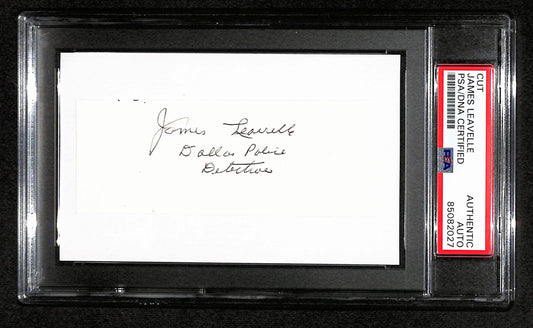 James Leavelle
Dallas Police
Detective
CUT
JAMES LEAVELLE
PSA/DNA CERTIFIED
PSA
AUTHENTIC
AUTO
85082027